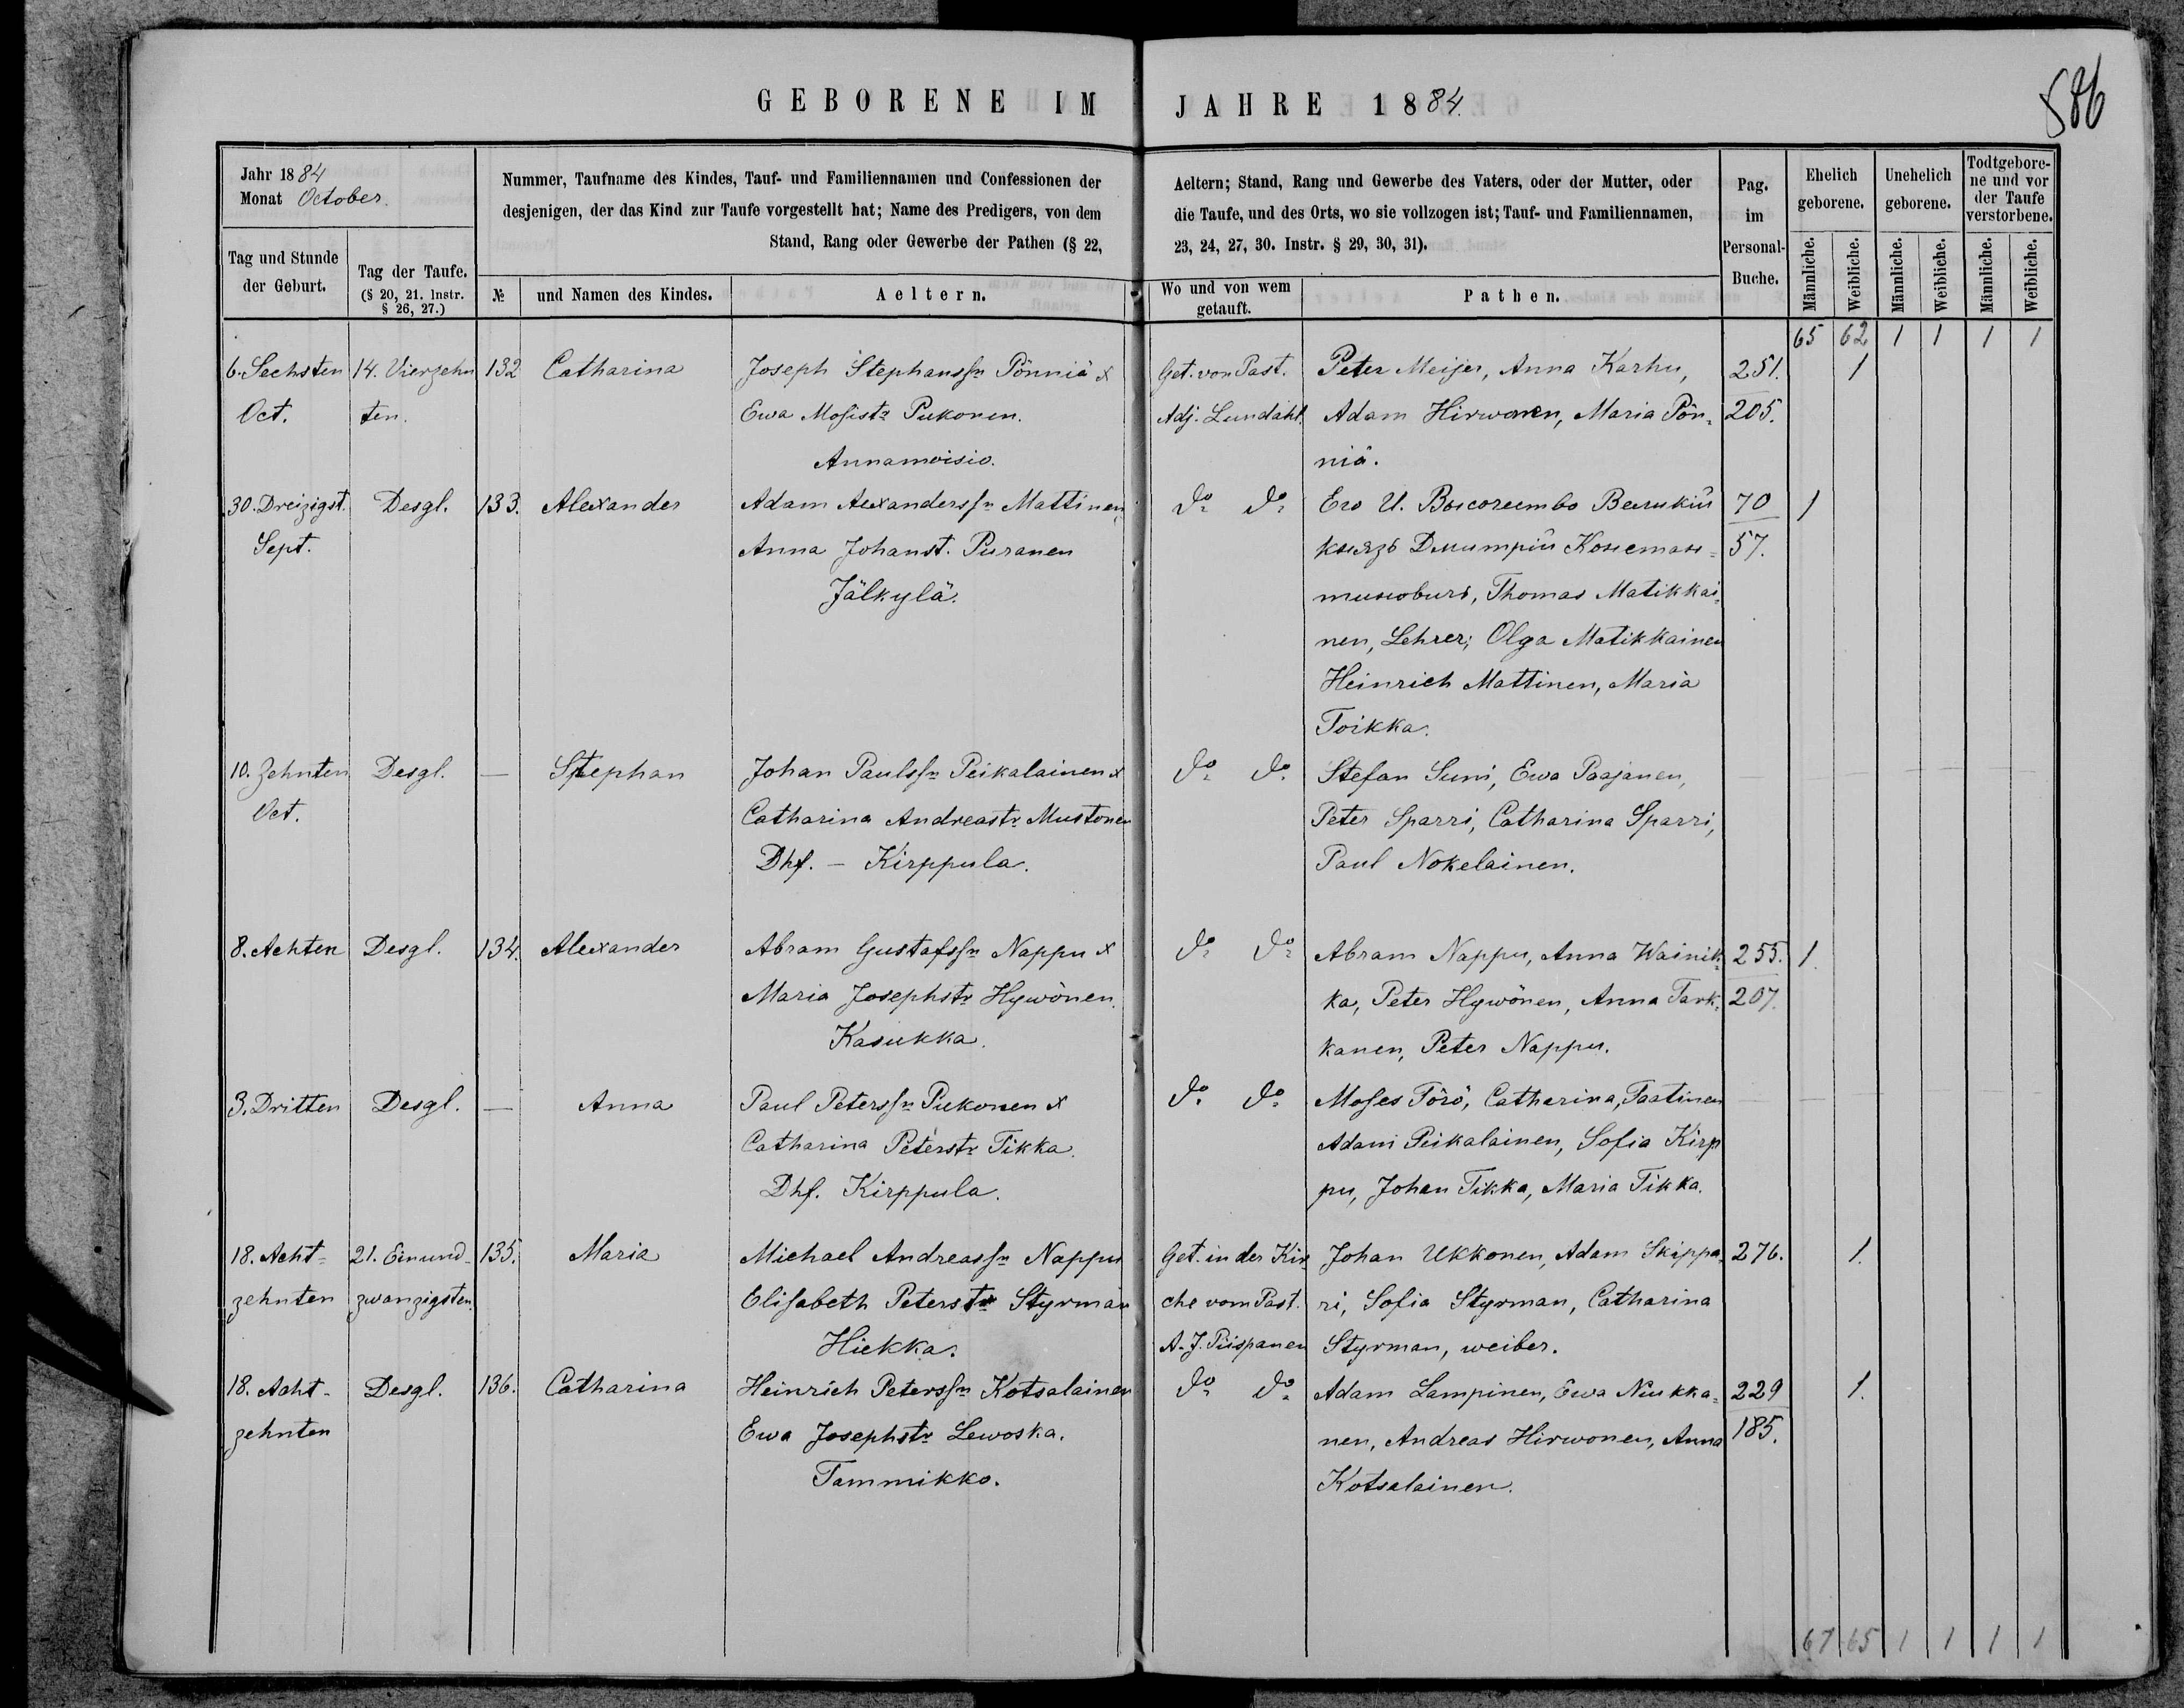 GEBORENE IM JAHRE 1884.
586
Jahr 1884
Monat October.
Nummer, Taufname des Kindes, Tauf- und Familiennamen und Confessionen der
desjenigen, der das Kind zur Taufe vorgestellt hat; Name des Predigers, von dem
Stand, Rang oder Gewerbe der Pathen (§ 22,
Aeltern; Stand, Rang und Gewerbe des Vaters, oder der Mutter, oder
die Taufe, und des Orts, wo sie vollzogen ist; Tauf- und Familiennamen,
23, 24, 27, 30. Instr. § 29, 30, 31).
Pag.
im
Personal-
Buche.
Ehelich
geborene.
Unehelich
geborene.
Todtgebore-
ne und vor
der Taufe
verstorbene.
Tag und Stunde
der Geburt.
Tag der Taufe.
(§ 20, 21. Instr.
§ 26, 27.)
№
und Namen des Kindes.
Aeltern.
Wo und von wem
getauft.
Pathen.
Männliche. Weibliche. Männliche. Weibliche. Männliche. Weibliche.
65 62 1 1 1 1
6. Sechsten 14. Vierzehn 132 Catharina Joseph Stephanssn Pönniä x Get. von Past. Peter Meijer, Anna Karhu, 251. 1
Oct. ten. Ewa Mosistr Pukonen. Adj. Lundahl. Adam Hirwonen, Maria Pön- 205.
Annamoisio. niä.
30. Dreizigst. Desgl. 133. Alexander Adam Aexanderssn Mattinen do do Его И. Высочество Великій 70 1
Sept. Anna Johanst. Puranen князь Дмитрій Констан- 57.
Jälkylä. тиновичъ, Thomas Matikkai-
nen, Lehrer; Olga Matikkainen
Heinrich Mattinen, Maria
Toikka.
10. Zehnten Desgl. — Stephan Johan Paulssn Peikalainen x do do Stefan Suni, Ewa Paajanen,
Oct. Catharina Andreastr Mustonen Peter Sparri, Catharina Sparri,
Dhf. - Kirppula. Paul Nokelainen.
8. Achten Desgl. 134. Alexander Abram Gustafssn Nappu x do do Abram Nappu, Anna Wainik- 255. 1.
Maria Josephstr Hywönen. ka, Peter Hywönen, Anna Tark- 207.
Kasukka. kanen, Peter Nappu.
3. Dritten Desgl. — Anna Paul Peterssn Pukonen x do do Moses Törö, Catharina, Taatinen
Catharina Peterstr Tikka. Adam Peikalainen, Sofia Kirp
Dhf. Kirppula. pu, Johan Tikka, Maria Tikka.
18. Acht- 21. Einund- 135. Maria Michael Andreassn Nappu Get. in der Kir Johan Ukkonen, Adam Skippa- 276. 1.
zehnten zwanzigsten. Elisabeth Peterstr Styrman che vom Past. ri, Sofia Styrman, Catharina
Hiekka. A. J. Piispanen Styrman, weiber.
18. Acht- Desgl. 136. Catharina Heinrich Peterssn Kotsalainen do do Adam Lampinen, Ewa Niukka- 229 1.
zehnten Ewa Josephstr Lewoska. nen, Andreas Hirwonen, Anna 185.
Tammikko. Kotsalainen.
67 65 1 1 1 1